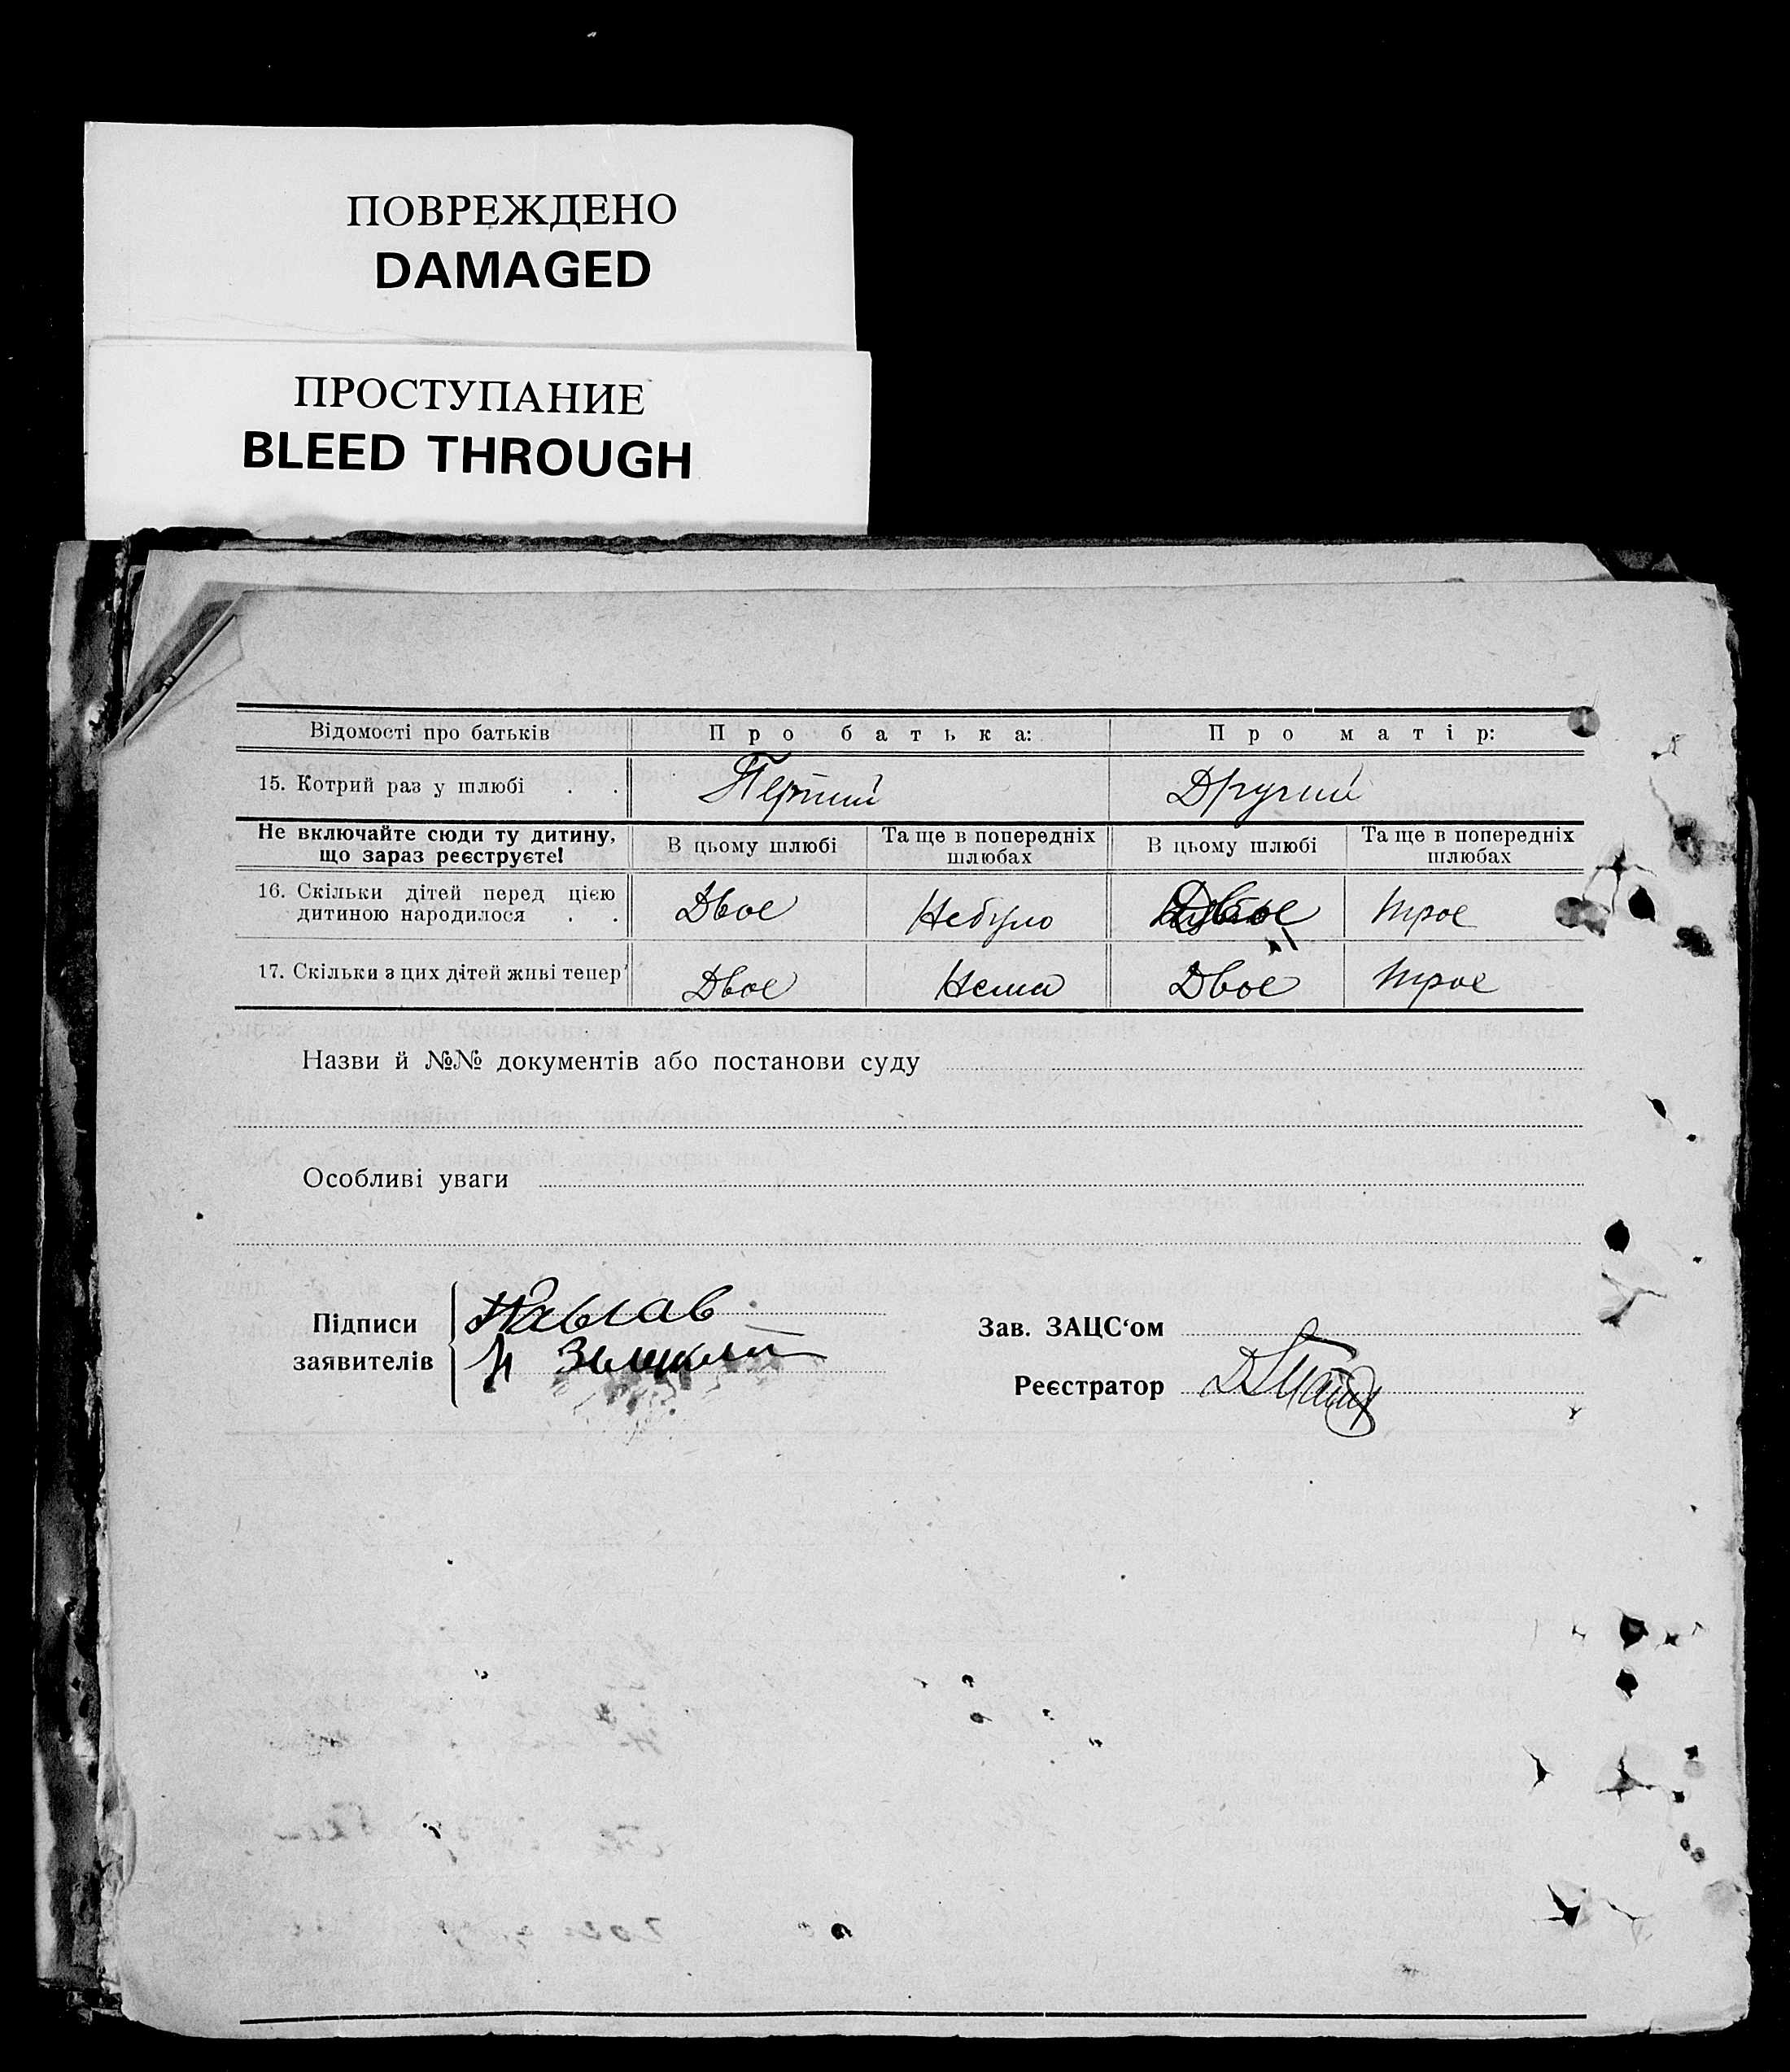 ПОВРЕЖДЕНО
DAMAGED
ПРОСТУПАНИЕ
BLEED THROUGH
Відомості про батьків Про батька: Про матір:
15. Котрий раз у шлюбі . . Перший Другий
Не включайте сюди ту дитину, що зараз реєструєте! В цьому шлюбі Та ще в попередніх шлюбах В цьому шлюбі Та ще в попередніх шлюбах
16. Скільки дітей перед цією
дитиною народилося . . Двоє Небуло Двоє троє
17. Скільки з цих дітей живі тепер Двоє Нема Двоє троє
Назви й №№ документів або постанови суду
Особливі уваги
Підписи
заявителів
Зав. ЗАЦС‘ом
Реєстратор